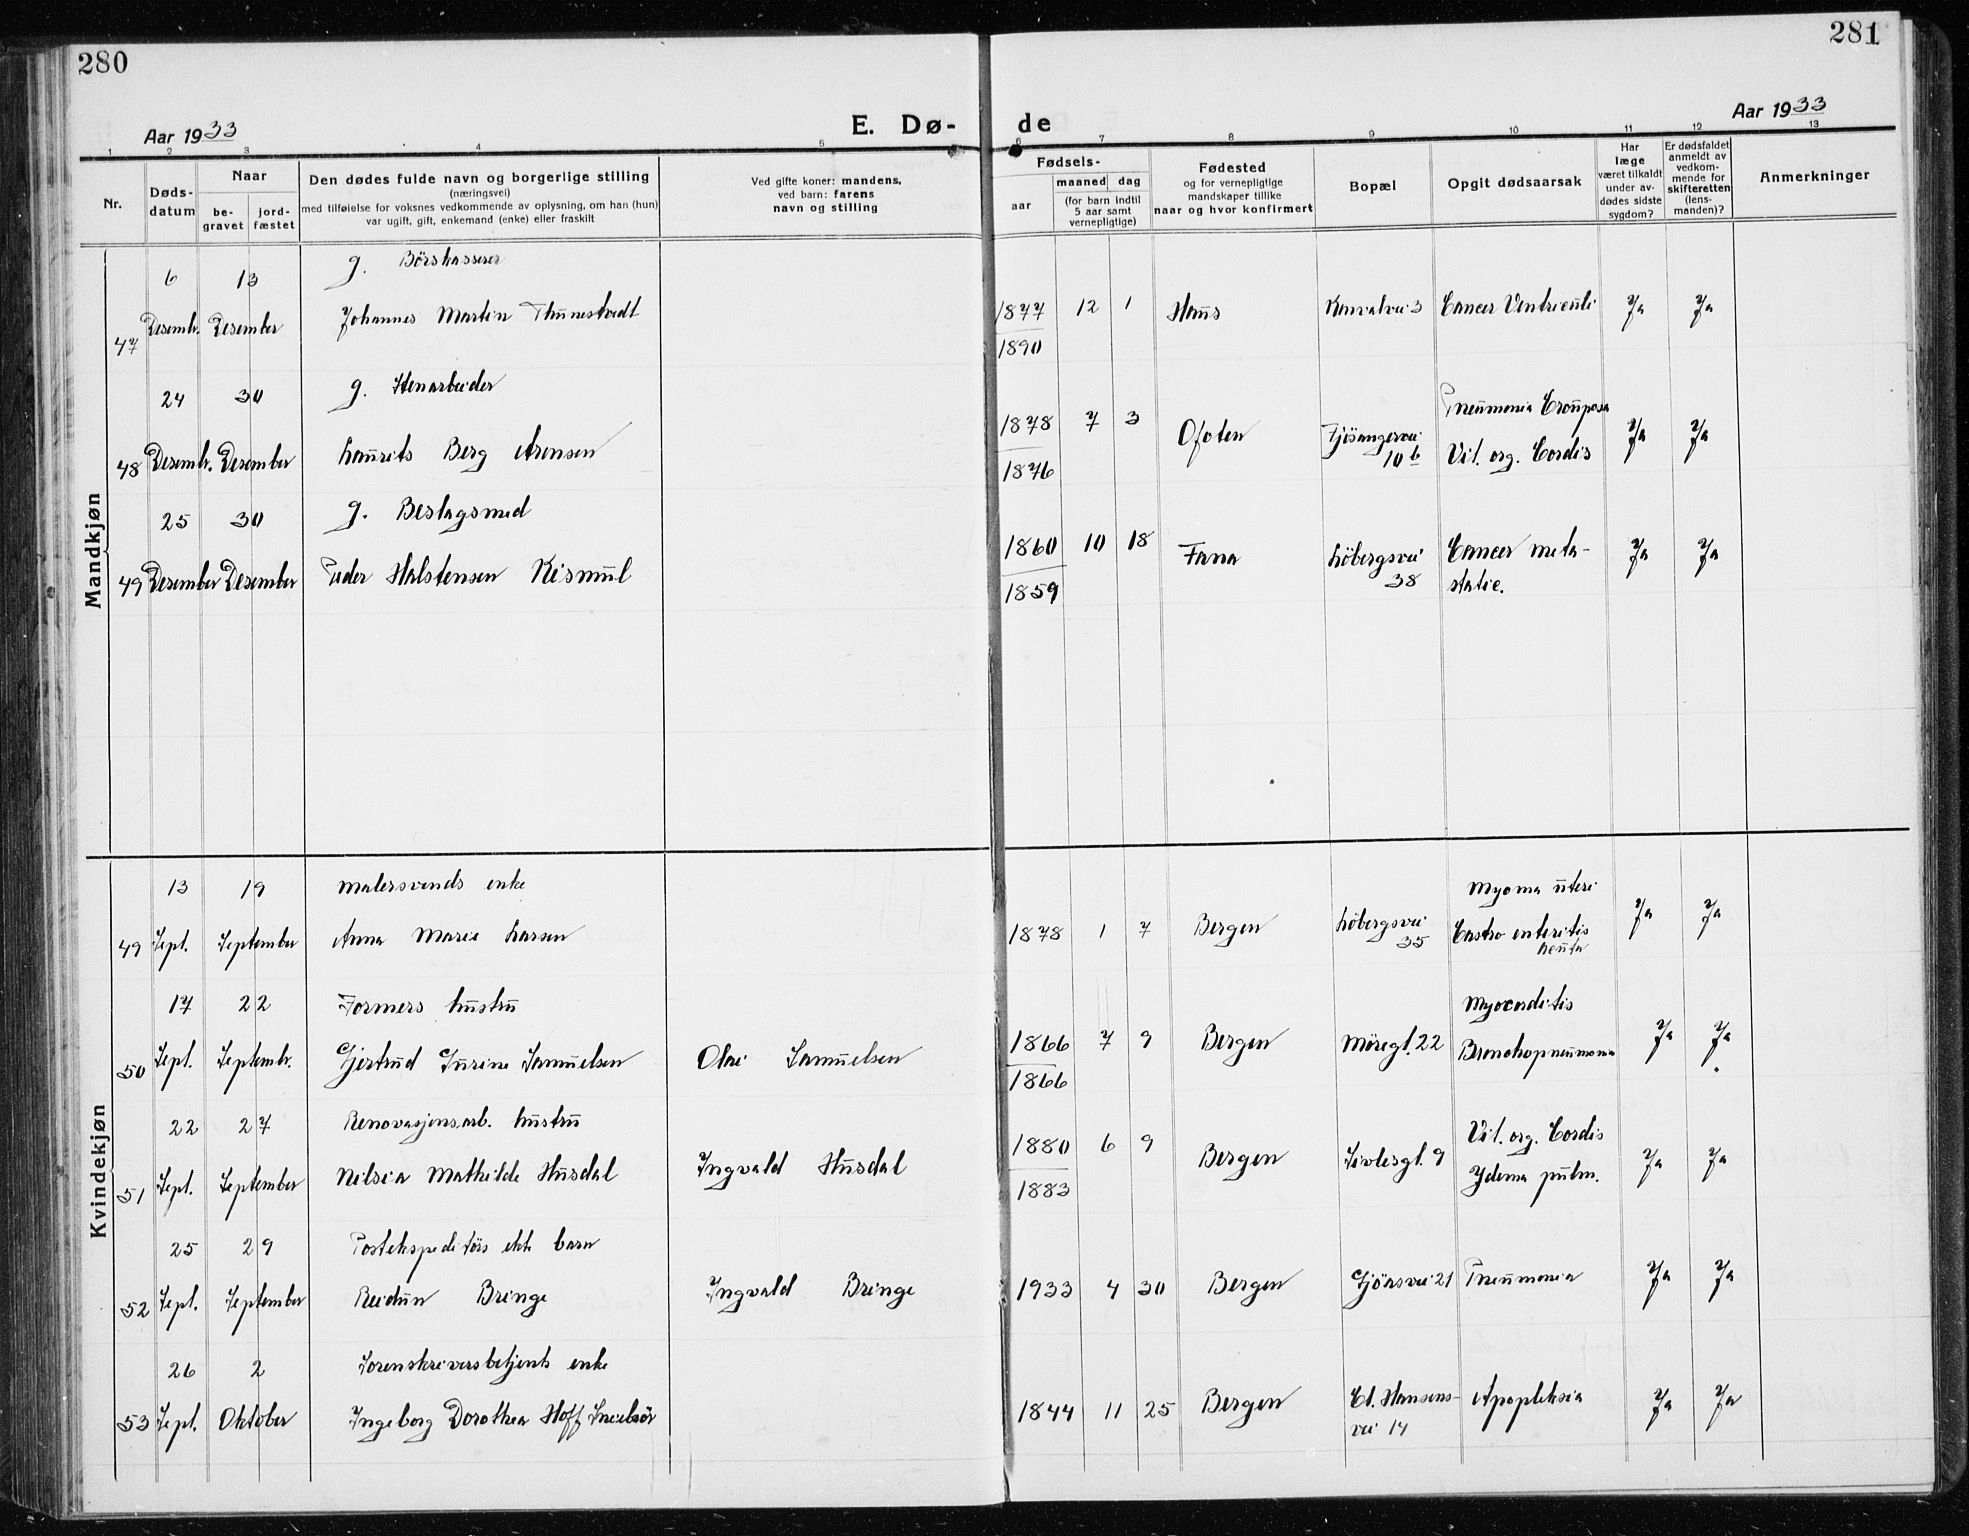 280
281
Aar 1933
E. Dø-
de
Aar 1933
1 2 3 4 5 6 7 8 9 10 11 12 13
Nr.
Døds-
datum
Naar
be-
gravet
jord-
fæstet
Den dødes fulde navn og borgerlige stilling
(næringsvei)
med tilføielse for voksnes vedkommende av oplysning, om han (hun)
var ugift, gift, enkemand (enke) eller fraskilt
Ved gifte koner: mandens,
ved barn: farens
navn og stilling
Fødsels-
aar
maaned dag
(for barn indtil
5 aar samt
vernepligtige)
Fødested
og for vernepligtige
mandskaper tillike
naar og hvor konfirmert
Bopæl
Opgit dødsaarsak
Har
læge
været tilkaldt
under av-
dødes sidste
sygdom?
Er dødsfaldet
anmeldt av
vedkom-
mende for
skifteretten
(lens-
manden)?
Anmerkninger
Mandkjøn
6 13 g. Börskasserer
47 Desembr. Desember Johannes Martin Thunestvedt 1877 12 1 Haus Konvalvei 3 Cancer Ventriculi Ja Ja
1890
24 30 g. Stenarbeider
48 Desembr. Desember Laurits Berg Arensen 1878 7 3 Ofoten Fjösangervei 10 b Pneumonia Crouposa Ja Ja
1876 Vit. org. Cordis
25 30 g. Beslagsmed
49 Desember Desember Peder Halstensen Kismul 1860 10 18 Fana Löbergsvei 38 Cancer meta- Ja Ja
1859 statie.
Kvindekjøn
13 19 Malersvends enke Myoma uteri
49 Sept. September Anna Marie Larsen 1878 1 7 Bergen Löbergsvei 35 Gastro enteritis Ja Ja
acuta
17 22 Formers hustru Myocarditis
50 Sept. Septembr. Gjertrud Surine Samuelsen Olai Samuelsen 1866 7 9 Bergen Möregt. 22 Bronchopneumonia Ja Ja
1866
22 27 Renovasjonsarb. hustru Vit. org. Cordis
51 Sept. September Nilsia Mathilde Husdal Ingvald Husdal 1880 6 9 Bergen Sivlesgt. 9 Ydema pulm. Ja Ja
1883
25 29 Postekspeditörs ekte barn
52 Sept. September Reidun Bringe Ingvald Bringe 1933 4 30 Bergen Gjörsvei 21 Pneumonia Ja Ja
26 2 Sorenskriversbetjents enke
53 Sept. Oktober Ingeborg Dorothea Hoff 1844 11 25 Bergen Cl. Hansens- Apopleksia Ja Ja
vei 14